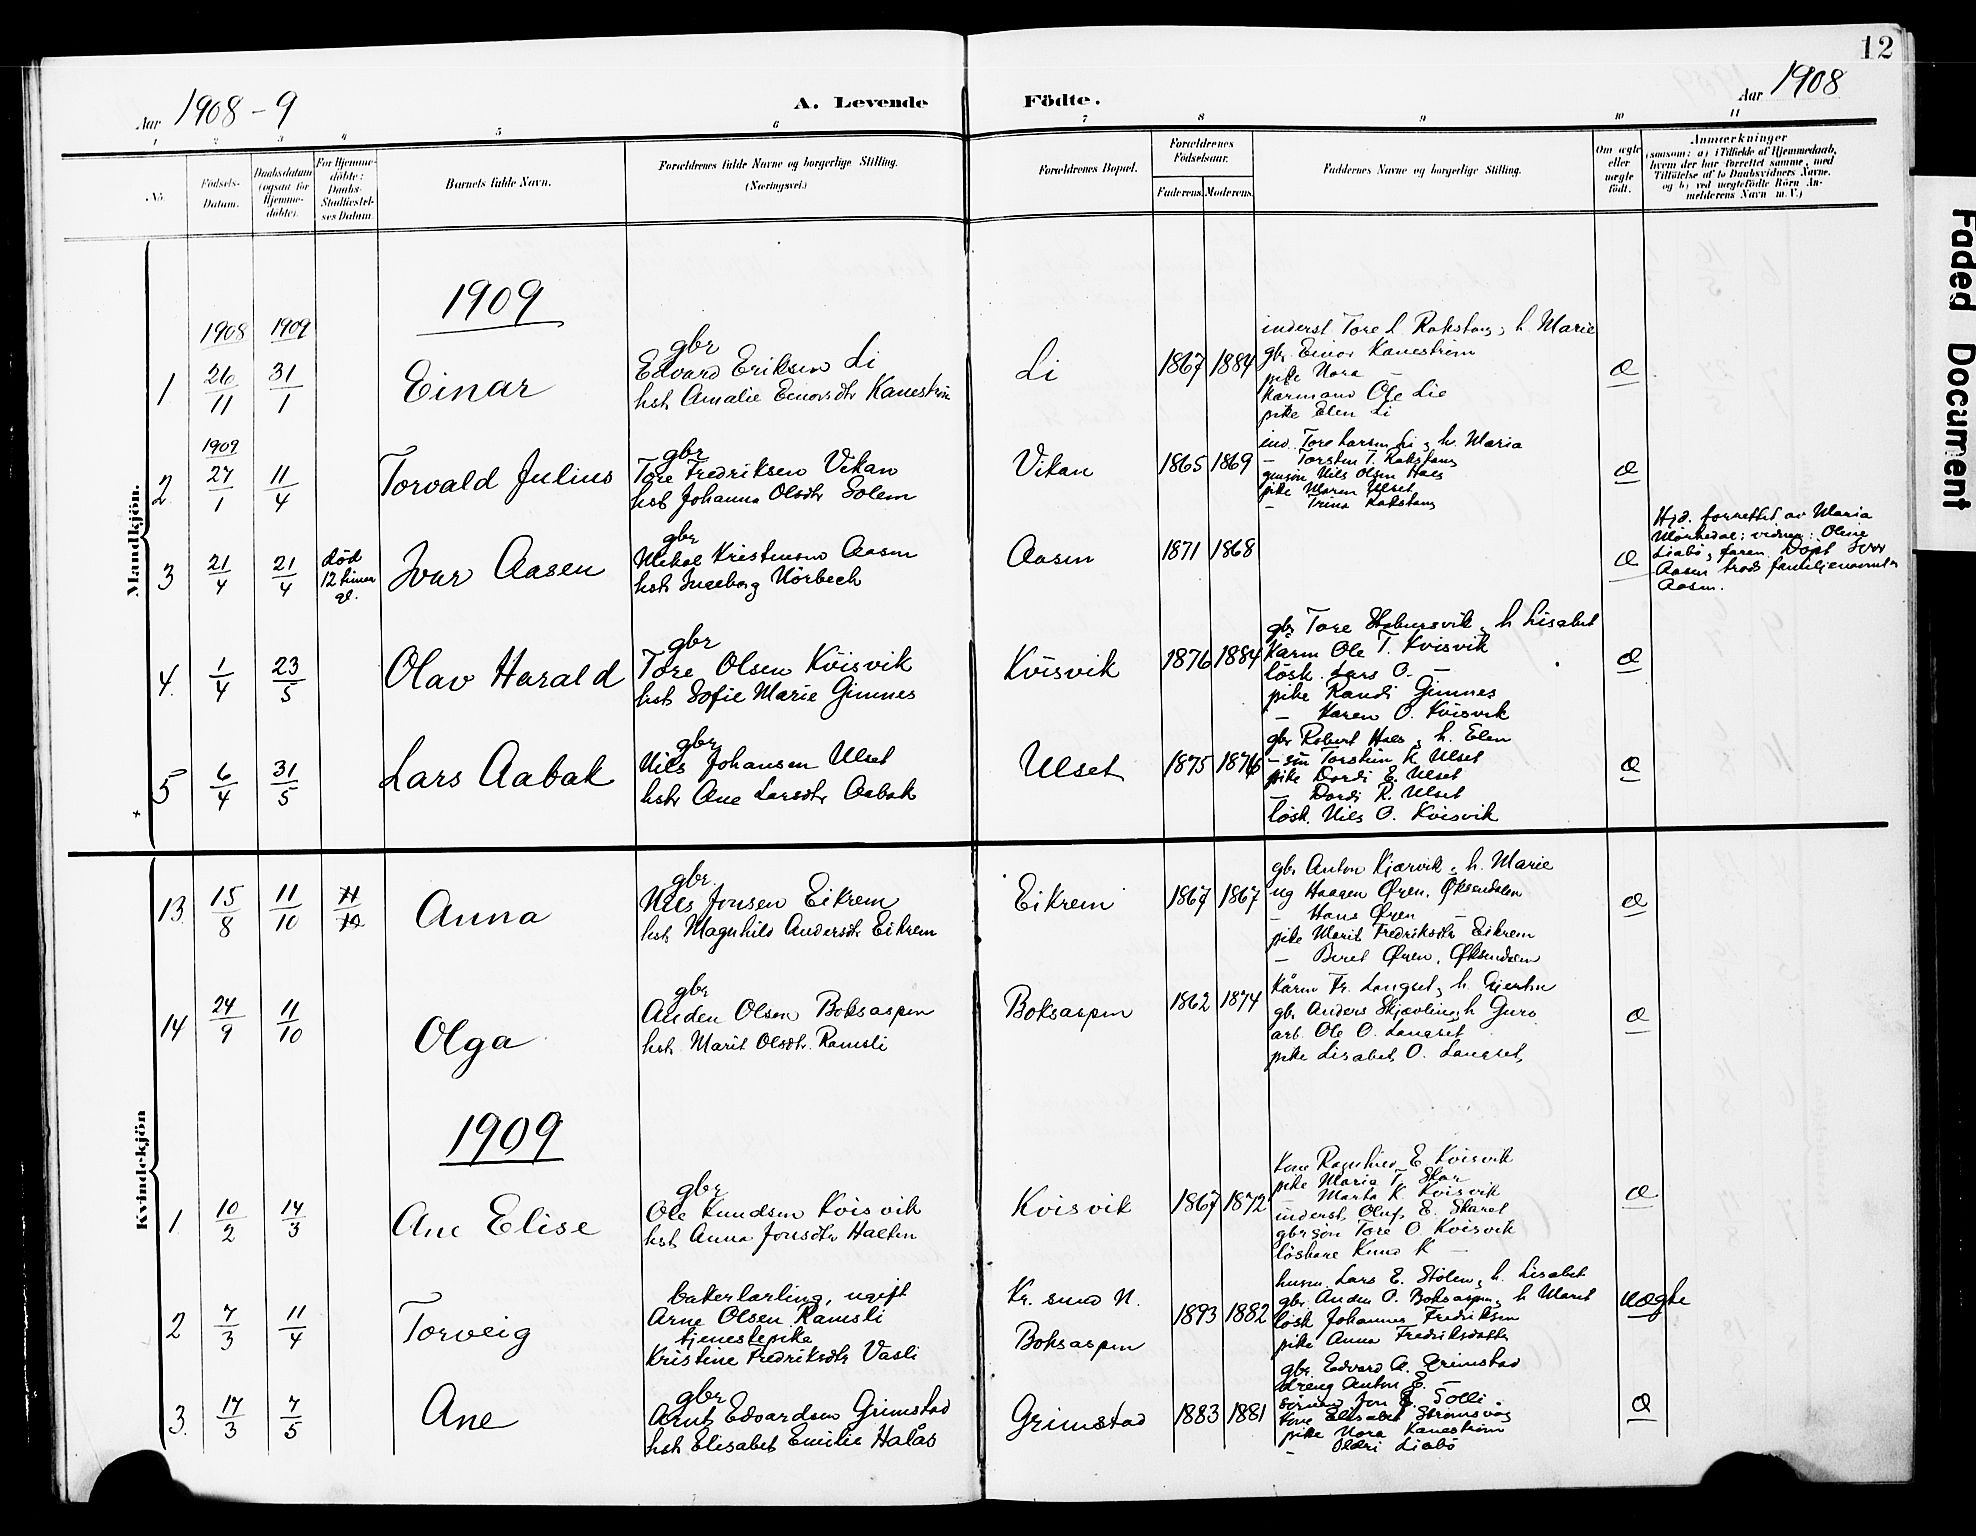 12
Aar 1908 - 9
A. Levende Födte.
Aar 1908
1 2 3 4 5 6 7 8 9 10 11
No.
Födsels-
Datum.
Daabsdatum
(ogsaa for
Hjemme-
döbte).
For Hjemme-
döbte:
Daabs-
Stadfæstel-
ses Datum
Barnets fulde Navn.
Forældrenes fulde Navne og borgerlige Stilling.
(Næringsvei.)
Forældrenes Bopæl.
Forældrenes
Födselsaar.
Faderens. Moderens.
Faddernes Navne og borgerlige Stilling.
Om ægte
eller
uægte
födt.
Anmærkninger
(saasom: a) i Tilfælde af Hjemmedaab,
hvem der har forrettet samme, med
Tilföielse af to Daabsvidners Navne,
og b) ved uægtefödte Börn An-
melderens Navn m.V.)
Mandkjön.
1909
1908 1909
1 26/11 31/1 Einar
gbr
Edvard Eriksen Li
hst. Amalie Einarsdtr Kaneström
Li 1867 1884
inderst. Tore L. Rakstang, h. Marie
gbr. Einar Kaneström
pike Nora —
Karmand Ole Lie
pike Elen Li
æ
1909
2 27/1 11/4 Torvald Julius
gbr
Tore Fredriksen Vikan
hst Johanna Olsdtr Solem
Vikan 1865 1869
ind. Tore Larsen Li, h. Maria
— Torsten T. Rakstang
Nils Olsen Hals
pike Maren Ulset
— Trina Rakstang
æ
3 21/4 21/4 död
12 timer
gl.
Ivar Aasen
gbr
Mikal Kristensen Aasen
hst. Ingeborg Nörbech
Aasen 1871 1868
æ
Hjd. forrettet av Maria
Mörkedal; vidner: Oline
Liabö, faren. Döpt Ivar
Aasen trods familjenavnet
Aasen.
4. 1/4 23/5 Olav Harald
gbr
Tore Olsen Kvisvik
hst. Sofie Marie Gimnes
Kvisvik 1876 1884
gbr Tore Stokersvik, h Lisabet
Karm Ole T. Kvisvik
lösk. Lars O. —
pike Randi Gimnes
— Karen O. Kvisvik
æ
5 6/4 31/5 Lars Aabak
gbr
Nils Johansen Ulset
hstr Ane Larsdtr Aabak
Ulset 1875 1876
gbr Robert Hals, h. Elen
— sön Torstein K Ulset
pike Dordi E. Ulset
— Dordi R. Ulset
lösk. Nils O. Kvisvik
æ
Kvindekjön
13. 15/8 11/10 11/10 Anna
gbr.
Nils Jonsen Eikrem
hst. Magnhild Andersdtr Eikrem
Eikrem 1867 1867
gbr Anton Kjærvik, h. Marie
ug Haagen Øren, Øksendalen
— Hans Øren —
pike Marit Fredriksdtr Eikrem
— Beret Øren, Øksendalen
æ
14 24/9 11/10 Olga
gbr
Anden Olsen Boksaspen
hst. Marit Olsdtr. Ramsli
Boksaspen 1862 1874
Kårm Fr. Langset, h. Gjertin
gbr. Anders Skjævling, h Guro
arb. Ole O. Langset
pike Lisabet O. Langset
æ
1909
1 10/2 14/3 Ane Elise
gbr
Ole Knudsen Kvisvik
hst. Anna Jonsdtr Halten
Kvisvik 1867 1872
Kone Ragnhild E Kvisvik
pike Maria T. Skar
— Marta K. Kvisvik
inderst Oluf E. Skaret
gbrsön Tore O. Kvisvik
löskare Knud K —
æ
2 7/3 11/4 Torveig
bakerlærling, ugift
Arne Olsen Ramsli
tjenestepike
Kristine Fredriksdtr Vasli
Kr. sund N.
Boksaspen
1893 1882
husm. Lars E. Stölen, h. Lisabet
gbr. Anden O. Boksaspen, h Marit
lösk Johannes Fredriksen
pike Anna Fredriksdatter
uægte
3. 17/3 7/5 Ane
gbr
Arnt Edvardsen Grimstad
hst. Elisabet Emilie Halås
Grimstad 1883 1881
gbr. Edvard A. Grimstad
dreng Anton E. —
Jon E. Tolli
Kone Elisabet Strömsvåg
pike Nora Kaneström
— Oldri Liabö
æ
Faded Document